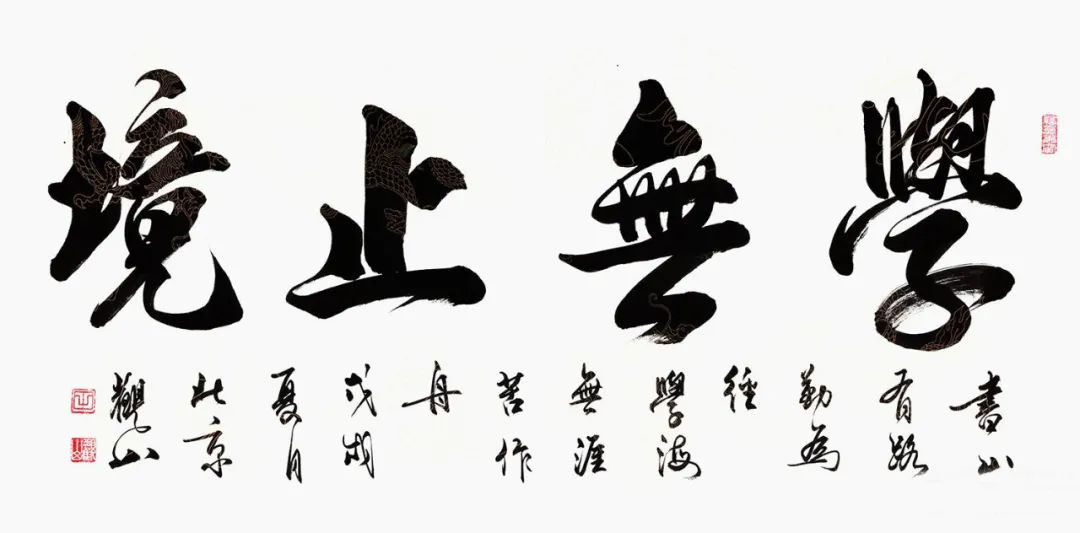 學無止境
書山
有路
勤為
徑
學海
無涯
苦作
舟
戊戌
夏月
北京
觀山